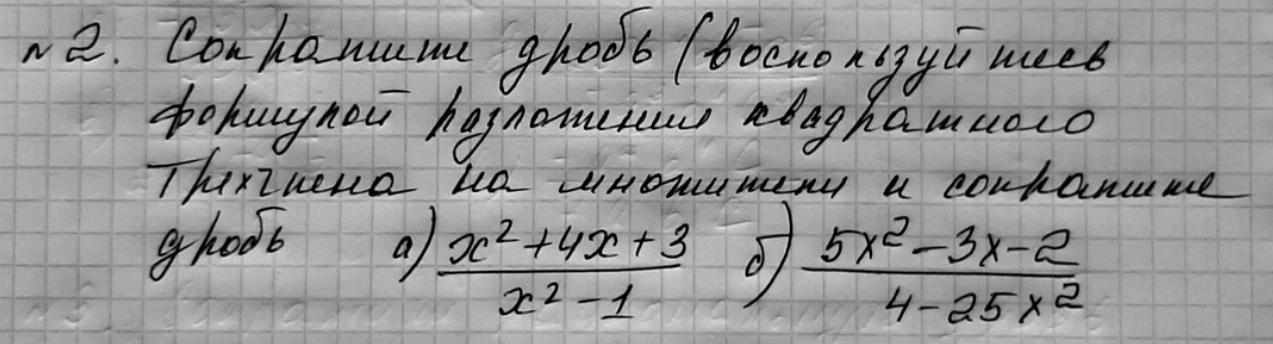 №2. Сократите дробь (воспользуйтесь
формулой разложения квадратного
трёхчлена на множители и сократите
дробь а) (x² + 4x + 3)/(x² - 1) б) (5x² - 3x - 2)/(4 - 25x²)